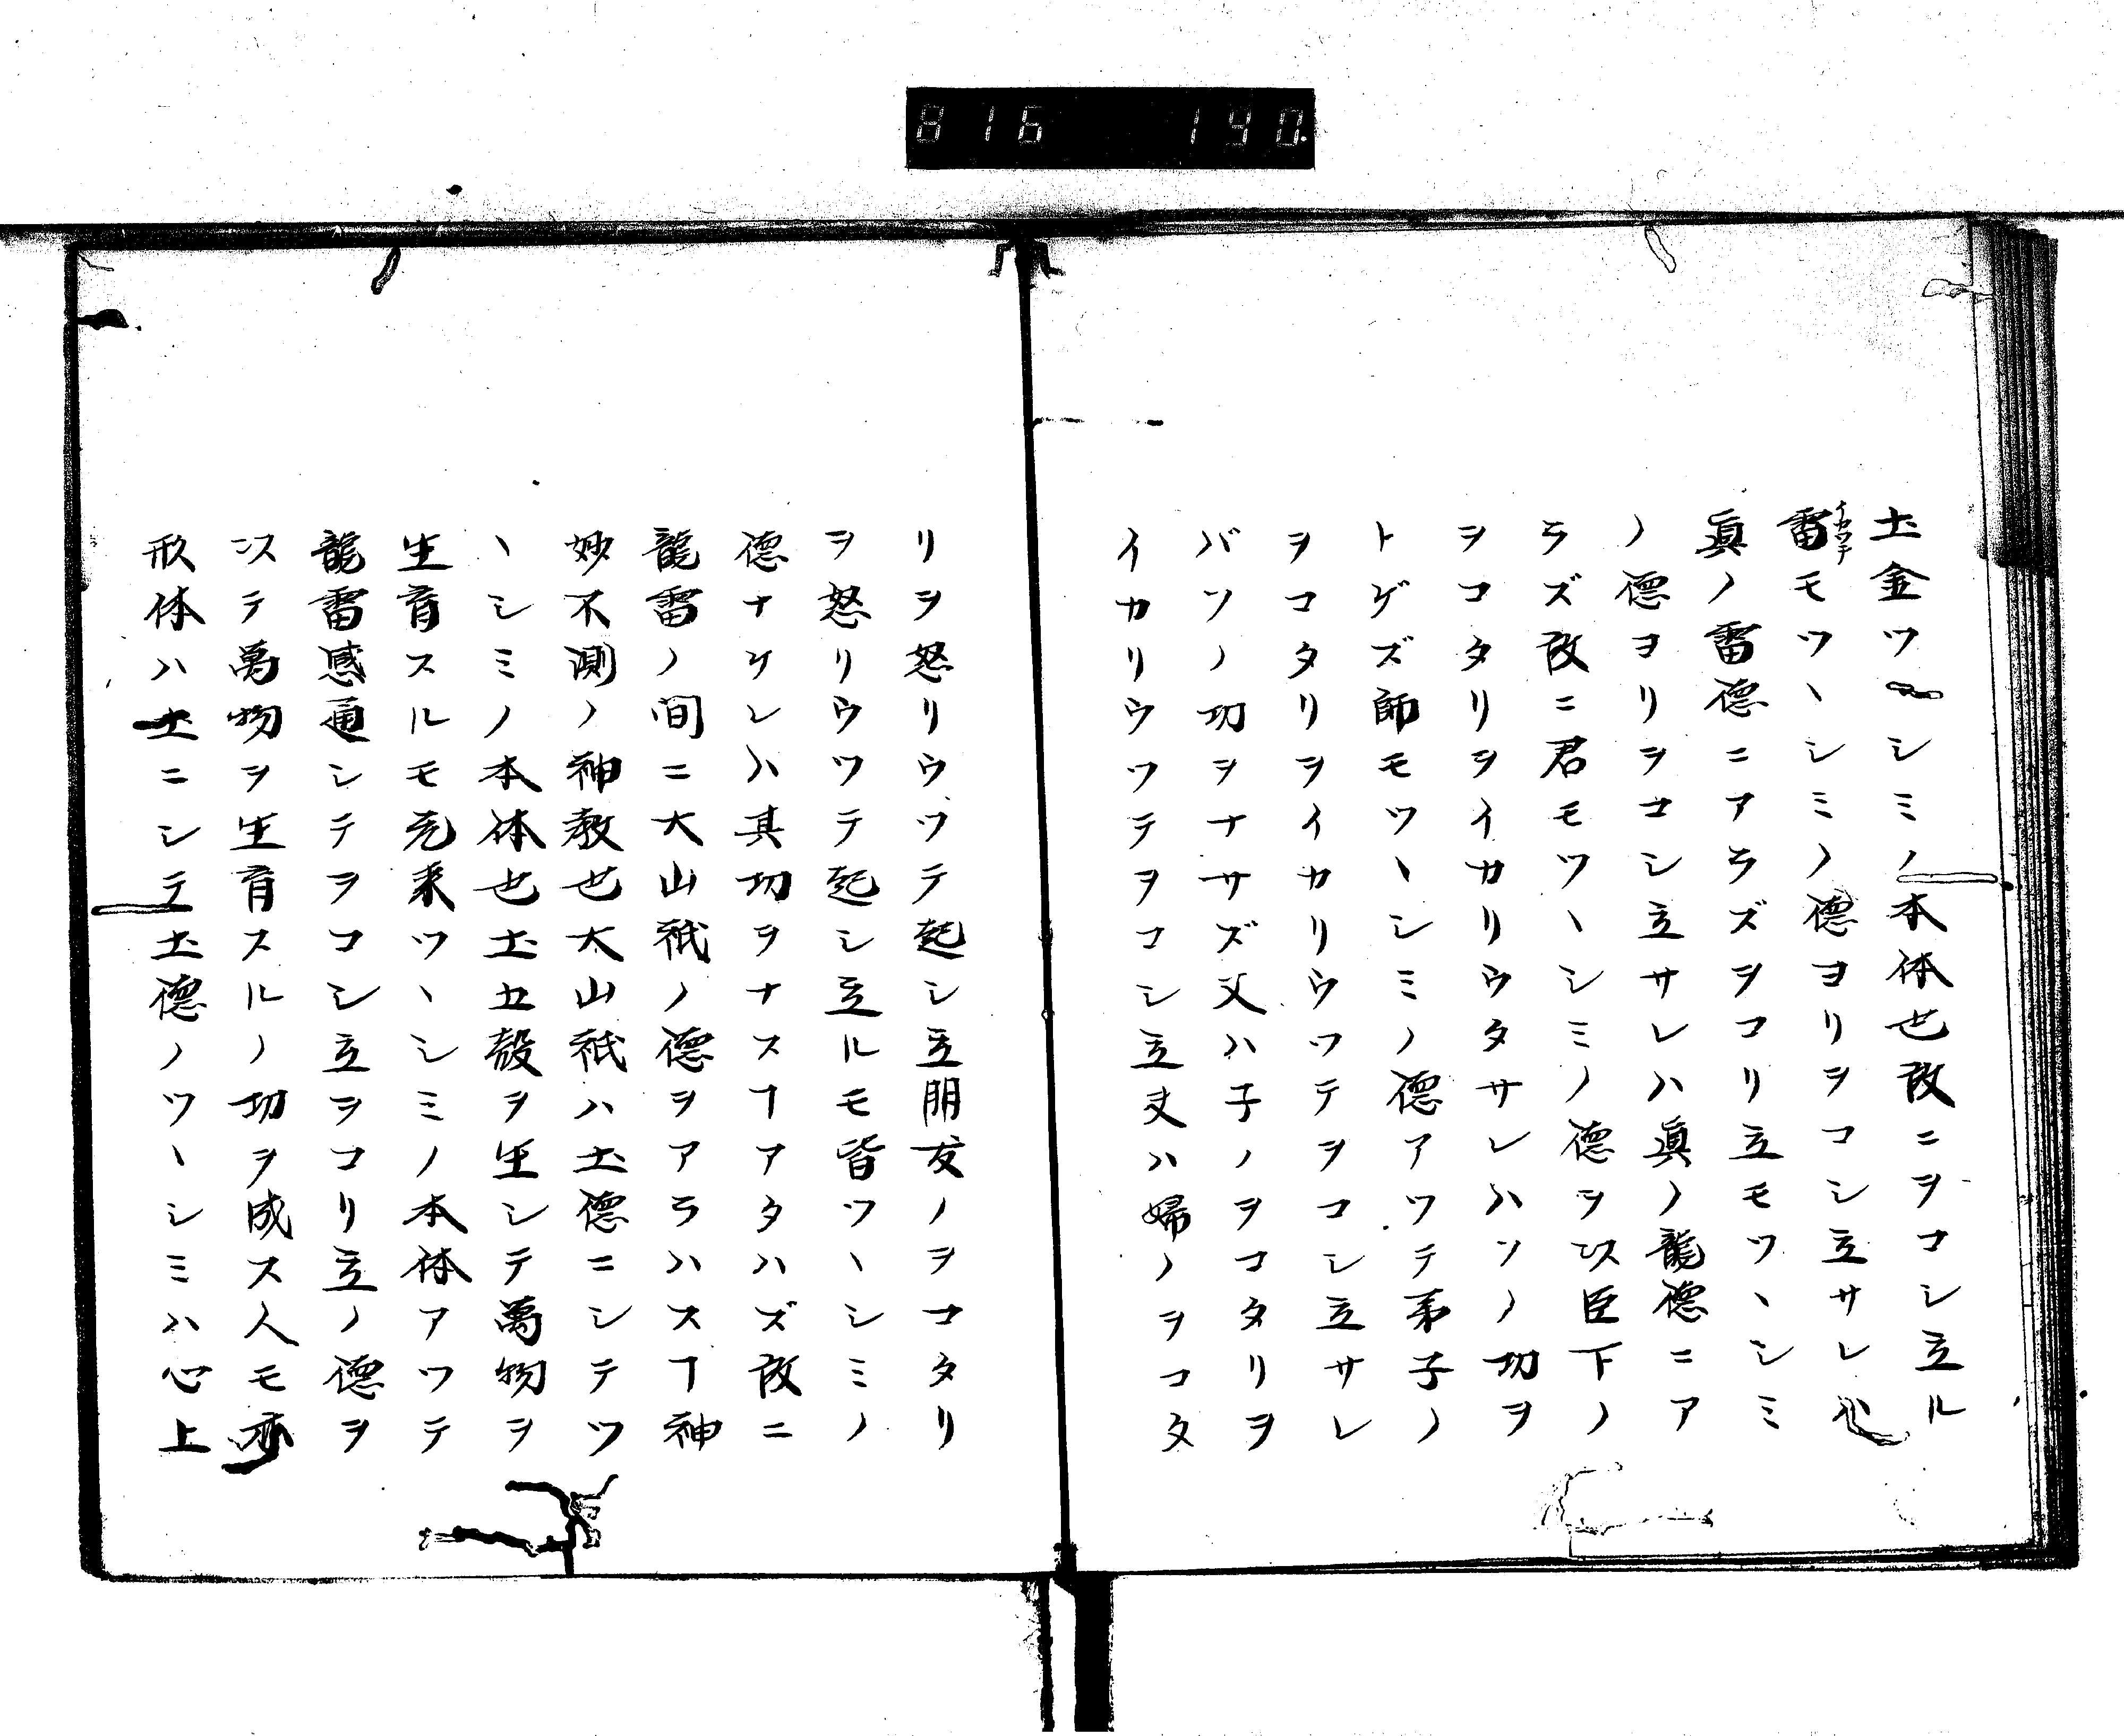 816 190.
土金ツヽシミノ本体也故ニヲコシ立ル
雷モツヽシミノ德ヨリヲコシ立サレハ
イカツチ
眞ノ雷德ニアラズヲコリ立モツヽシミ
ノ德ヨリヲコシ立サレハ眞ノ龍德ニア
ラズ故ニ君モツヽシミノ德ヲ以臣下ノ
ヲコタリヲイカリウタサレハソノ功ヲ
トゲズ師モツヽシミノ德アツテ弟子ノ
ヲコタリヲイカリウツテヲコシ立サレ
バソノ功ヲナサズ父ハ子ノヲコタリヲ
イカリウツテヲコシ立夫ハ婦ノヲコタ
リヲ怒リウツテ起シ立朋友ノヲコタリ
ヲ怒リウツテ起シ立ルモ皆ツヽシミノ
德ナケレハ其功ヲナスヿアタハズ故ニ
龍雷ノ間ニ大山祇ノ德ヲアラハスヿ神
妙不測ノ神教也大山祇ハ土德ニシテツ
ヽシミノ本体也土五穀ヲ生シテ萬物ヲ
生育スルモ元来ツヽシミノ本体アツテ
龍雷感通シテヲコシ立ヲコリ立ノ德ヲ
以テ萬物ヲ生育スルノ功ヲ成ス人モ亦
形体ハ土ニシテ土德ノツヽシミハ心上